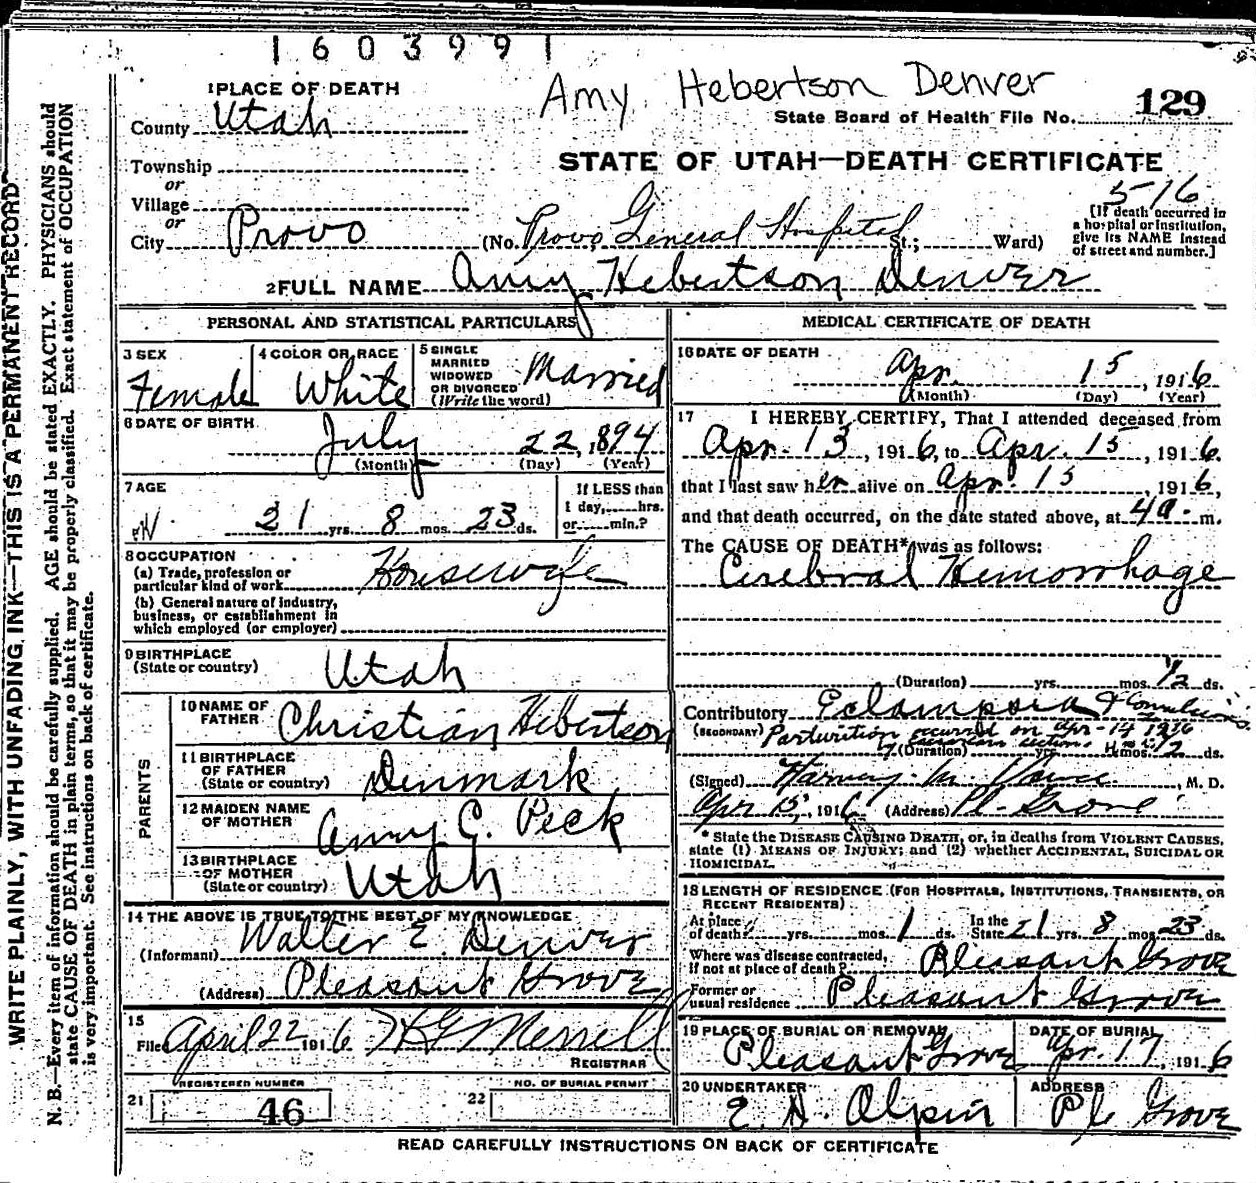 1603991
Amy Hebertson Denver
1 PLACE OF DEATH
County Utah
State Board of Health File No. 129
Township
or
Village
or
City Provo
STATE OF UTAH—DEATH CERTIFICATE
5-16
(No. Provo General Hospital St.; Ward)
[If death occurred in a hospital or institution, give its NAME instead of street and number.]
2 FULL NAME Amy Hebertson Denver
PERSONAL AND STATISTICAL PARTICULARS
3 SEX
Female
4 COLOR OR RACE
White
5 SINGLE MARRIED WIDOWED OR DIVORCED (Write the word)
Married
6 DATE OF BIRTH
July 22, 1894
(Month) (Day) (Year)
7 AGE
21 yrs. 8 mos. 23 ds.
If LESS than 1 day, hrs. or min.?
8 OCCUPATION
(a) Trade, profession or particular kind of work Housewife
(b) General nature of industry, business, or establishment in which employed (or employer)
9 BIRTHPLACE
(State or country) Utah
PARENTS
10 NAME OF FATHER Christian Hebertson
11 BIRTHPLACE OF FATHER (State or country) Denmark
12 MAIDEN NAME OF MOTHER Amy G. Peck
13 BIRTHPLACE OF MOTHER (State or country) Utah
14 THE ABOVE IS TRUE TO THE BEST OF MY KNOWLEDGE
(Informant) Walter E. Denver
(Address) Pleasant Grove
15
Filed April 22 1916 H G Merrell
REGISTRAR
REGISTERED NUMBER
21 46
NO. OF BURIAL PERMIT
22
MEDICAL CERTIFICATE OF DEATH
16 DATE OF DEATH
Apr. 15, 1916
(Month) (Day) (Year)
17 I HEREBY CERTIFY, That I attended deceased from
Apr. 13, 1916, to Apr. 15, 1916.
that I last saw her alive on Apr. 15 1916,
and that death occurred, on the date stated above, at 4 a. m.
The CAUSE OF DEATH* was as follows:
Cerebral Hemorrhage
(Duration) yrs. mos. 1/2 ds.
Contributory Eclampsia & Convulsions
(SECONDARY) Parturition occurred on Apr-14 1916
(Duration) yrs. mos. 1/2 ds.
(Signed) Harvey M. , M. D.
Apr 15, 1916 (Address) Pl. Grove
* State the DISEASE CAUSING DEATH, or, in deaths from VIOLENT CAUSES, state (1) MEANS OF INJURY; and (2) whether ACCIDENTAL, SUICIDAL OR HOMICIDAL.
18 LENGTH OF RESIDENCE (FOR HOSPITALS, INSTITUTIONS, TRANSIENTS, OR RECENT RESIDENTS)
At place of death yrs. mos. 1 ds. In the State 21 yrs. 8 mos. 23 ds.
Where was disease contracted, if not at place of death? Pleasant Grove
Former or usual residence Pleasant Grove
19 PLACE OF BURIAL OR REMOVAL
Pleasant Grove
DATE OF BURIAL
Apr. 17, 1916
20 UNDERTAKER
E. D. Olpin
ADDRESS
Pl Grove
READ CAREFULLY INSTRUCTIONS ON BACK OF CERTIFICATE
WRITE PLAINLY, WITH UNFADING INK—THIS IS A PERMANENT RECORD
N. B.—Every item of information should be carefully supplied. AGE should be stated EXACTLY. PHYSICIANS should
state CAUSE OF DEATH in plain terms, so that it may be properly classified. Exact statement of OCCUPATION
is very important. See instructions on back of certificate.